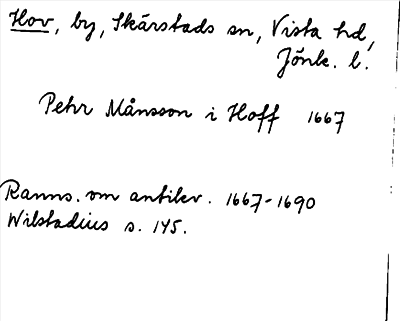 Hov, by, Skärstads sn, Vista hd,
Jönk. l.
Pehr Månsson i Hoff 1667
Ranns. om antikv. 1667-1690
Wilstadius s. 145.